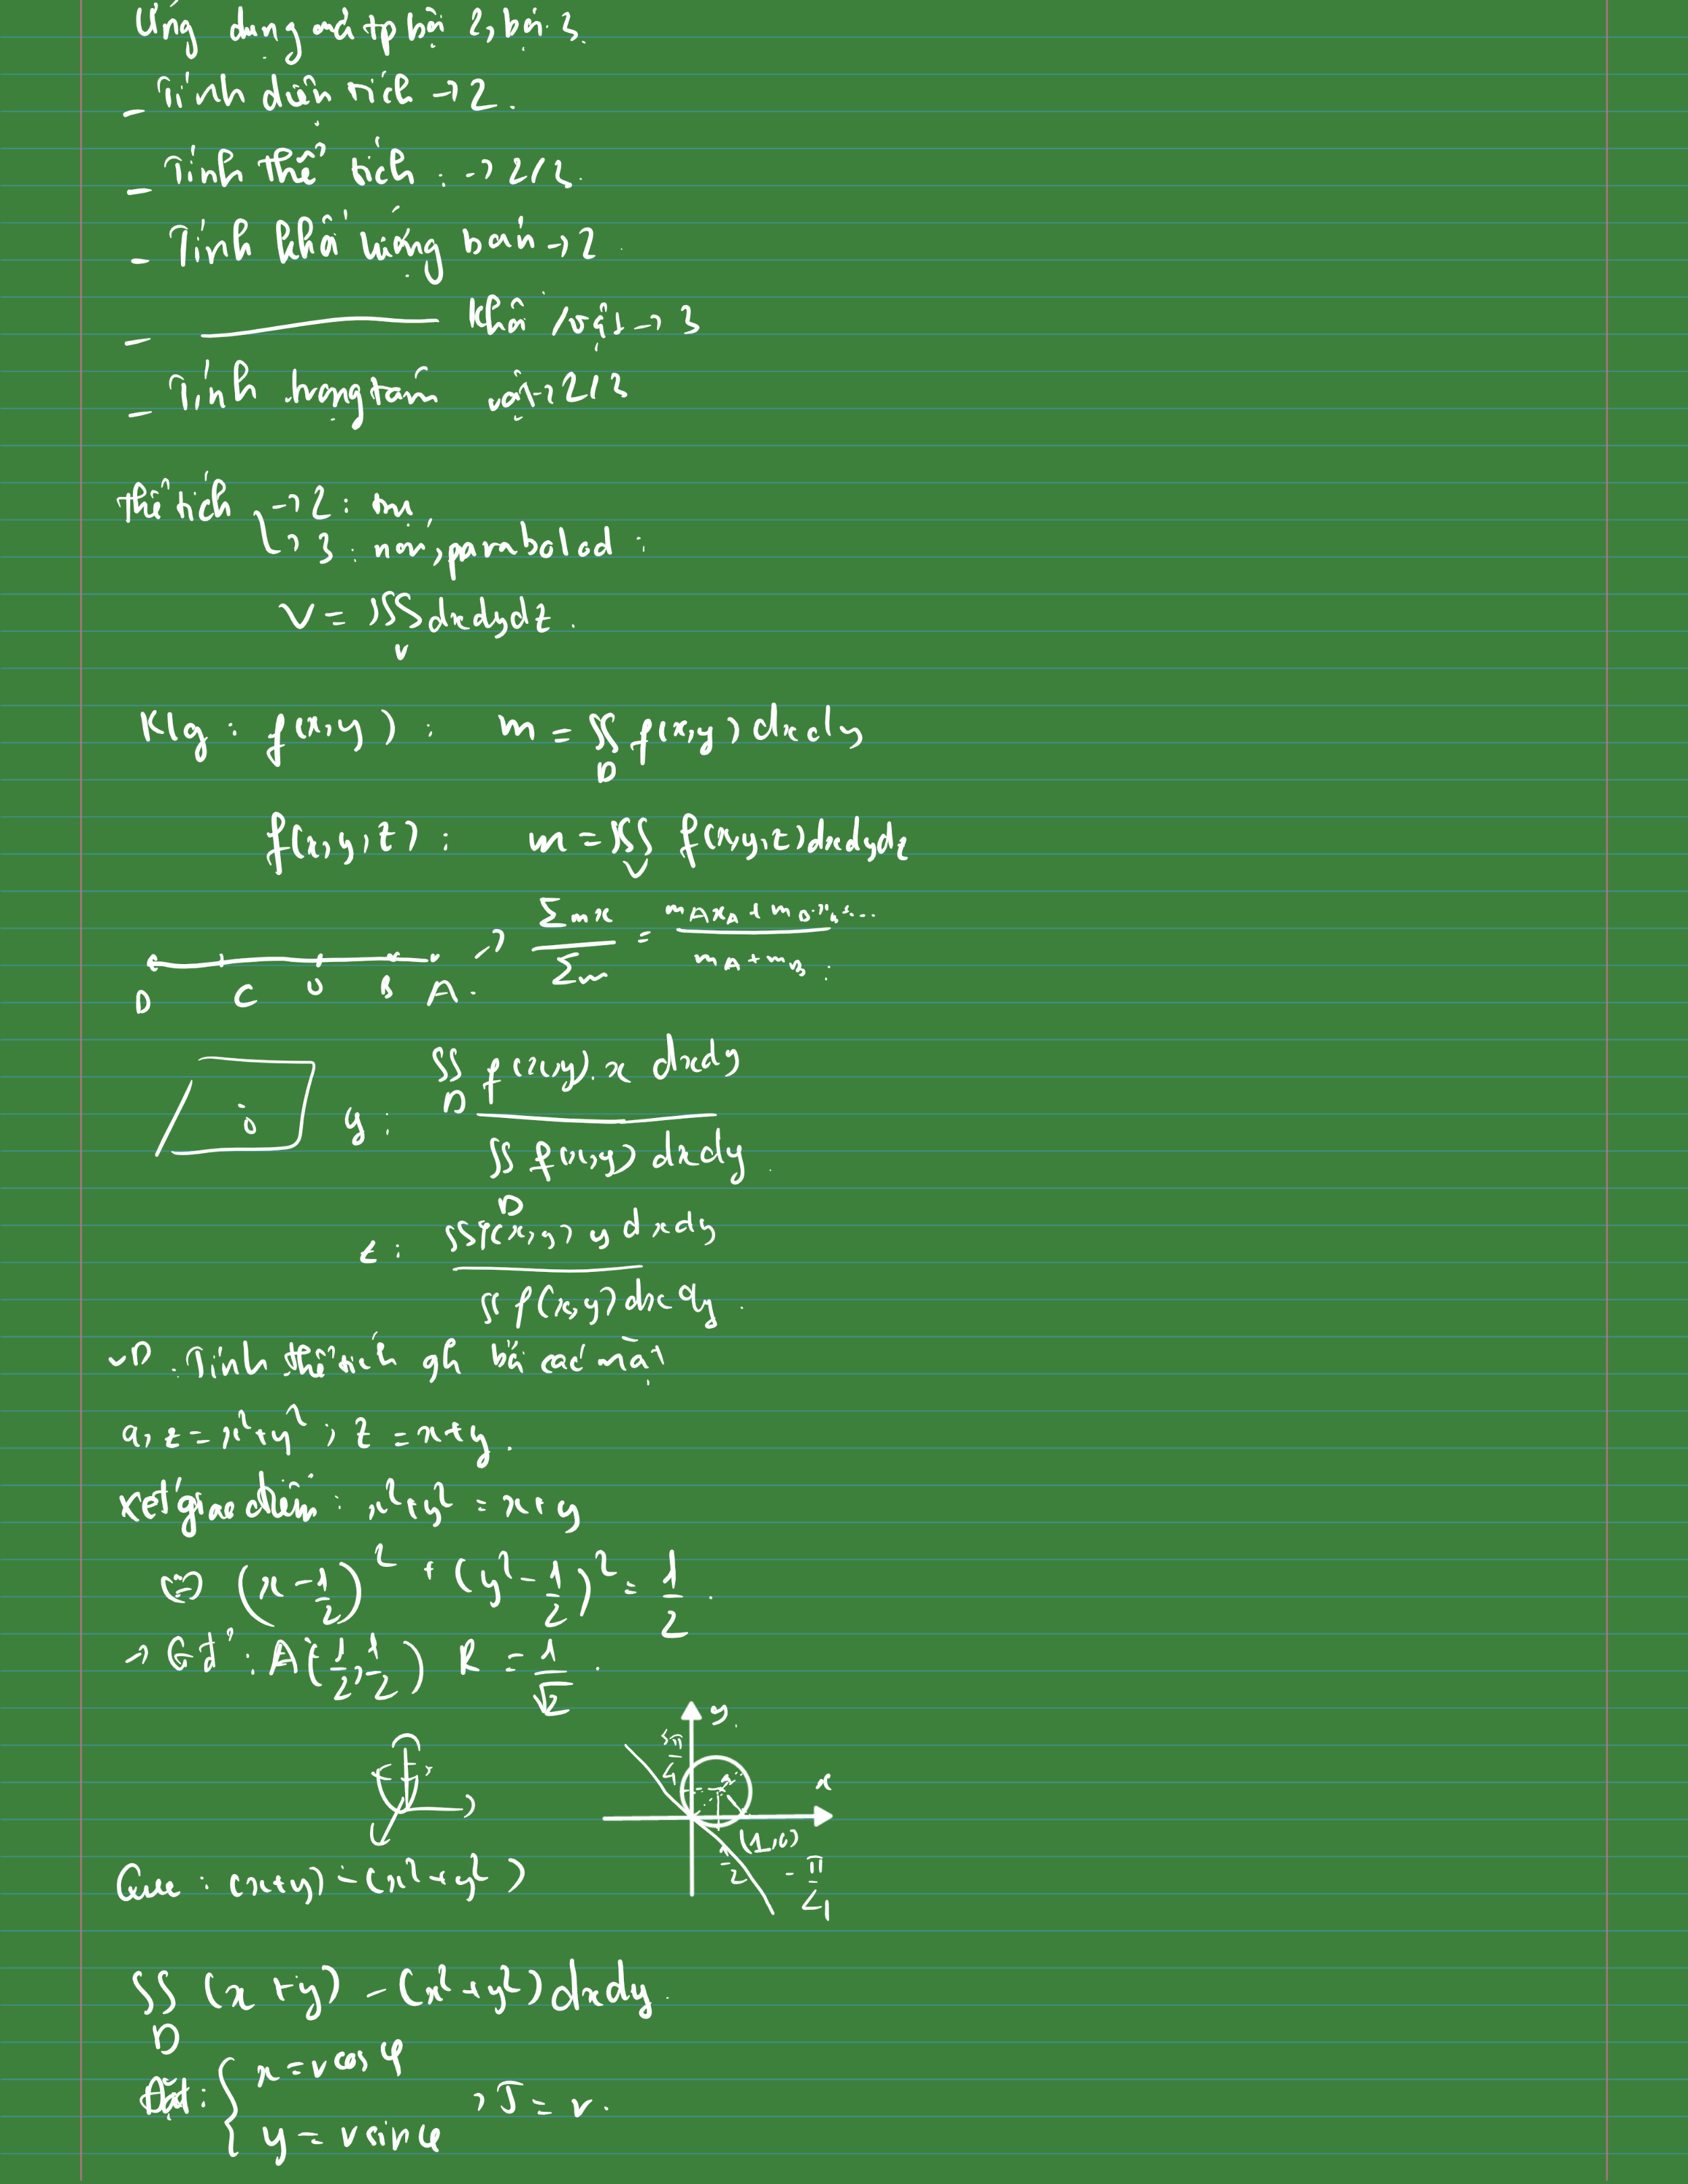 Ứng dụng tp bội 2, bội 3.
- Tính diện tích → 2.
- Tính thể tích : → 2/3.
- Tính khối lượng bản → 2.
- Khối /vật → 3
- Tính trọng tâm vật → 2/3
thể tích → 2 : trụ
→ 3 : nón, parabolod :
V = ∭ dxdydz.
V
Klg : f(x,y) : m = ∬ f(x,y) dxdy
D
f(x,y,z) : m = ∭ f(x,y,z) dxdydz
V
→ Σmx / Σm = mAxA + mB... / mA + mB
D C O B A.
∬ f(x,y).x dxdy
D
O y :
∬ f(x,y) dxdy
D
z : ∬ f(x,y) y dxdy
∬ f(x,y) dxdy.
VD. Tính thể tích gh bởi các mặt
a, z = x²+y² ; z = x+y.
Xét giao điểm : x²+y² = x+y
⇔ (x - 1/2)² + (y² - 1/2)² = 1/2.
→ Gđ : A(1/2, 1/2) R = 1/√2.
y
3π/4
x
(1,0)
- π/4
Cao : (x+y) - (x²+y²)
∬ (x+y) - (x²+y²) dxdy.
D
Đặt : { x = r cos φ , J = r.
y = r sin φ